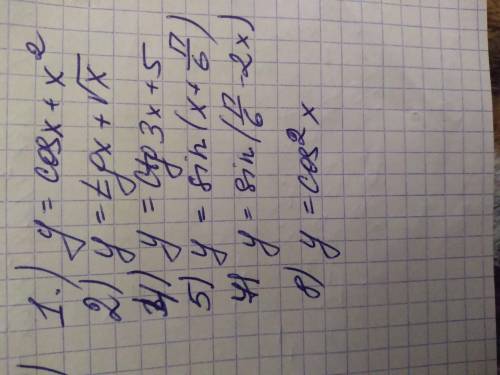 1.) y = cosx + x²
2) y = tgx + √x
4) y = ctg 3x + 5
5) y = sin (x + π/6)
7) y = sin (π/6 - 2x)
8) y = cos² x